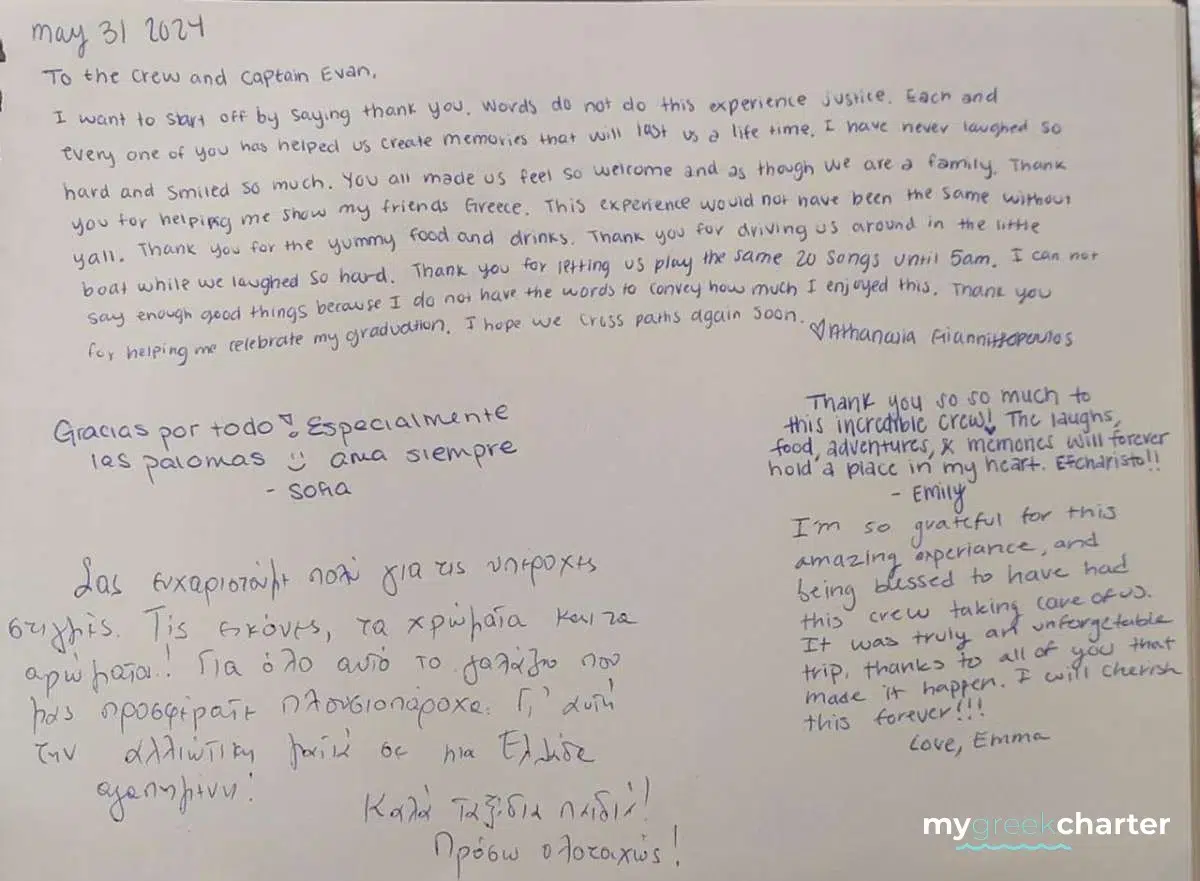 may 31 2024
To the crew and captain Evan,
I want to start off by saying thank you. Words do not do this experience justice. Each and
every one of you has helped us create memories that will last us a life time. I have never laughed so
hard and smiled so much. You all made us feel so welcome and as though we are a family. Thank
you for helping me show my friends Greece. This experience would not have been the same without
yall. Thank you for the yummy food and drinks. Thank you for driving us around in the little
boat while we laughed so hard. Thank you for letting us play the same 20 songs until 5am. I can not
say enough good things because I do not have the words to convey how much I enjoyed this. Thank you
for helping me celebrate my graduation. I hope we cross paths again soon.
♡Athanasia Giannitsopoulos
Gracias por todo! Especialmente
las palomas :) ama siempre
- Sofia
Thank you so so much to
this incredible crew! The laughs,
food, adventures, & memories will forever
hold a place in my heart. Efcharisto!!
- Emily
I'm so grateful for this
amazing experiance, and
being blessed to have had
this crew taking care of us.
It was truly an unforgetable
trip, thanks to all of you that
made it happen. I will cherish
this forever!!!
Love, Emma
Σας ευχαριστούμε πολύ για τις υπέροχες
στιγμές. Τις εικόνες, τα χρώματα και τα
αρώματα! Για όλο αυτό το γαλάζιο που
μας προσφέρατε πλουσιοπάροχα. Γι' αυτή
την αλλιώτικη ματιά σε μια Ελλάδα
αγαπημένη!
Καλά ταξίδια παιδιά!
Πρόσω ολοταχώς!
mygreekcharter